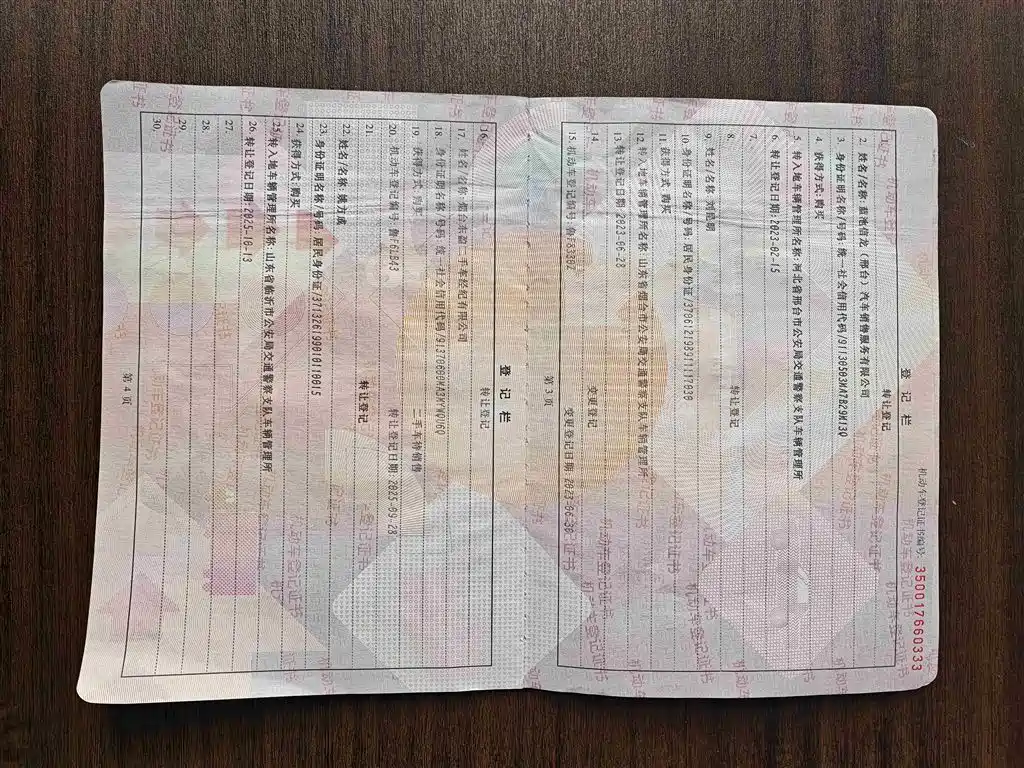 机动车登记证书编号: 350017660333
登记栏
转让登记
2. 姓名/名称:蓄池信龙（邢台）汽车销售服务有限公司
3. 身份证明名称/号码:统一社会信用代码/91130503MA7B29M13Q
4. 获得方式:购买
5. 转入地车辆管理所名称:河北省邢台市公安局交通警察支队车辆管理所
6. 转让登记日期:2023-02-15
7.
8. 转让登记
9. 姓名/名称:刘昆明
10. 身份证明名称/号码:居民身份证/370612198911117030
11. 获得方式:购买
12. 转入地车辆管理所名称:山东省烟台市公安局交通警察支队车辆管理所
13. 转让登记日期:2023-06-28
14. 变更登记
15. 机动车登记编号: 变更登记日期:2023-06-30
第 3 页
登记栏
16. 转让登记
17. 姓名/名称:烟台东盈二手车经纪有限公司
18. 身份证明名称/号码:统一社会信用代码/91370600MA3MYWQU6Q
19. 获得方式:购买 二手车待销售
20. 机动车登记编号:鲁F62B43 转让登记日期:2025-09-28
21. 转让登记
22. 姓名/名称:姚方成
23. 身份证明名称/号码:居民身份证/371326199010110015
24. 获得方式:购买
25. 转入地车辆管理所名称:山东省临沂市公安局交通警察支队车辆管理所
26. 转让登记日期:2025-10-13
27.
28.
29.
30.
第 4 页